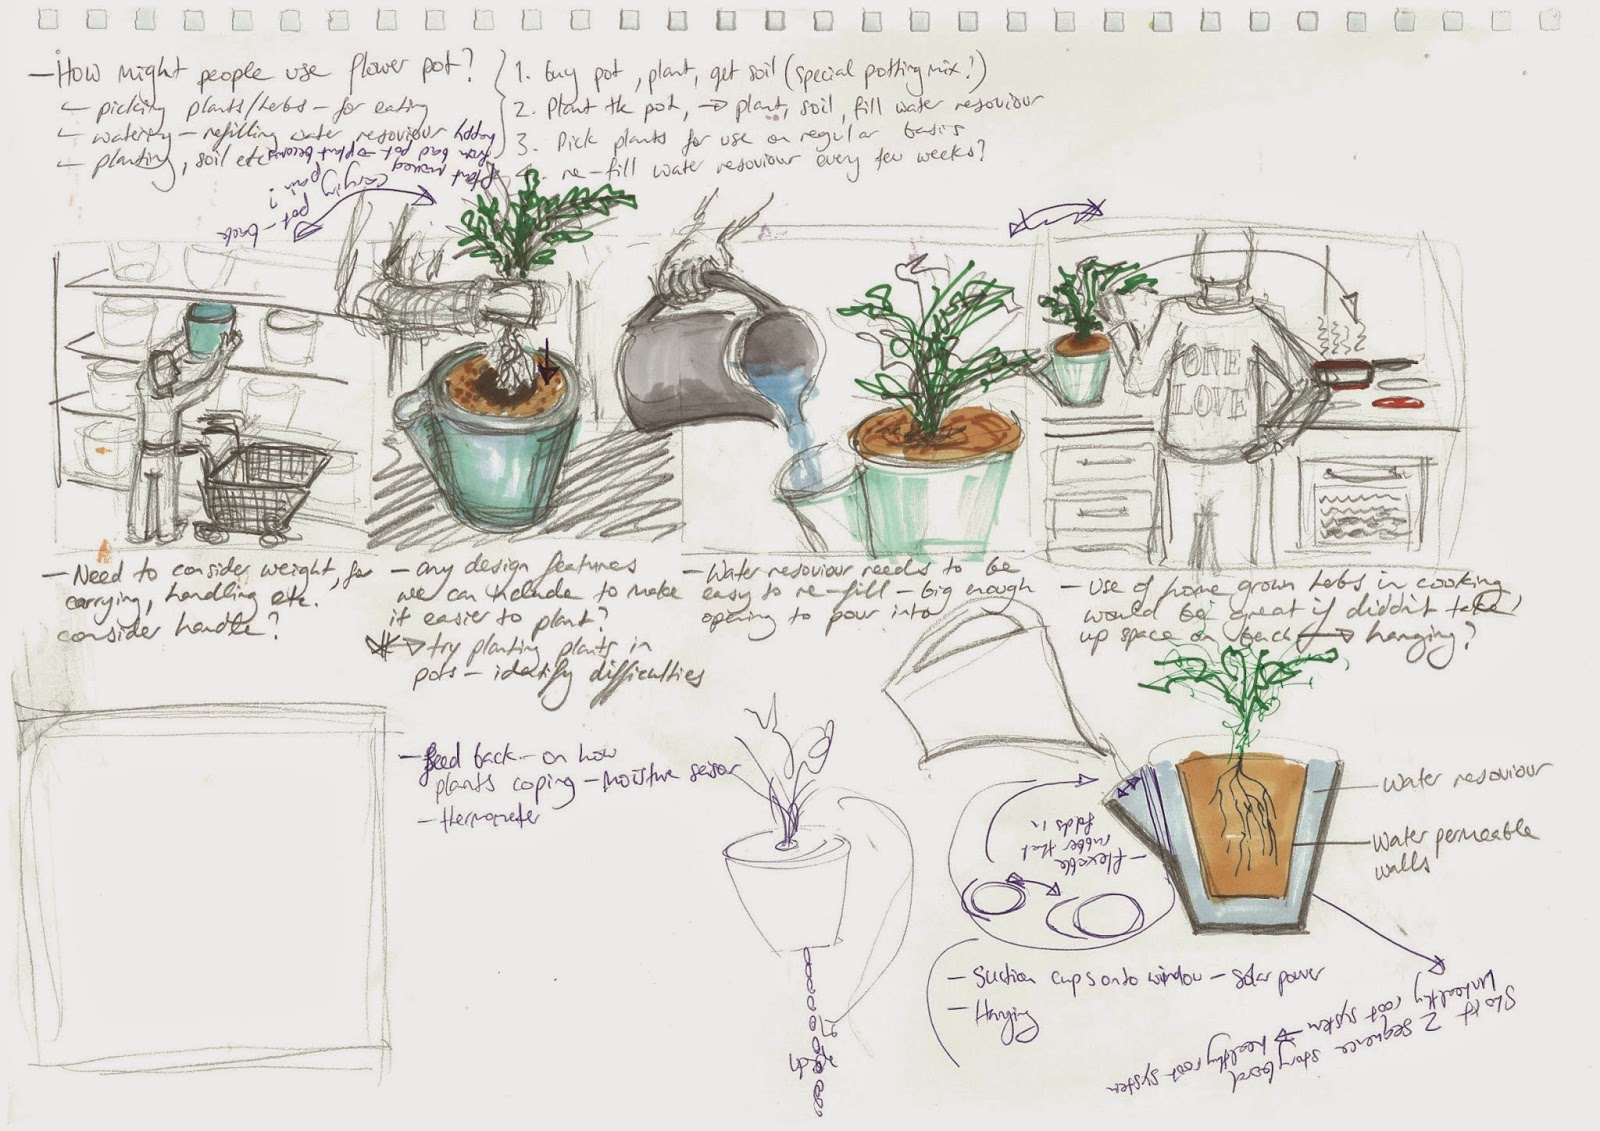 - How might people use flower pot?
- picking plants/herbs - for eating
- watering - refilling water resoviour
- planting, soil etc
1. Buy pot, plant, get soil (special potting mix?)
2. Plant the pot, → plant, soil, fill water resoviour
3. Pick plants for use on regular basis
4. re-fill water resoviour every few weeks?
Plant moved
from bad pot → plant becomes
happy
Carrying pot - back
pain?
ONE
LOVE
- Need to consider weight, for
carrying, handling etc.
consider handle?
- any design features
we can include to make
it easier to plant?
→ try planting plants in
pots - identify difficulties
- Water resoviour needs to be
easy to re-fill - big enough
opening to pour into
- Use of home grown herbs in cooking
would be great if diddn't take
up space on bench → hanging?
- feed back - on how
plants coping - moisture sensor
- thermometer
- flexable
rubber that
folds in
Water resoviour
Water permeable
walls
- Suction cups onto window - solar power
- Hanging
Start 2 sequence story board
Unhealthy root system → healthy root system